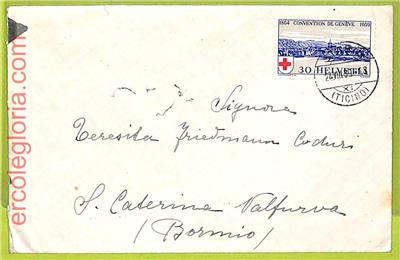 ercolegloria.com
1864 CONVENTION DE GENÈVE 1939
30 HELVETIA
(TICINO)
Signora
Teresita Friedmann Coduri
S. Caterina Valfurva
(Bormio)